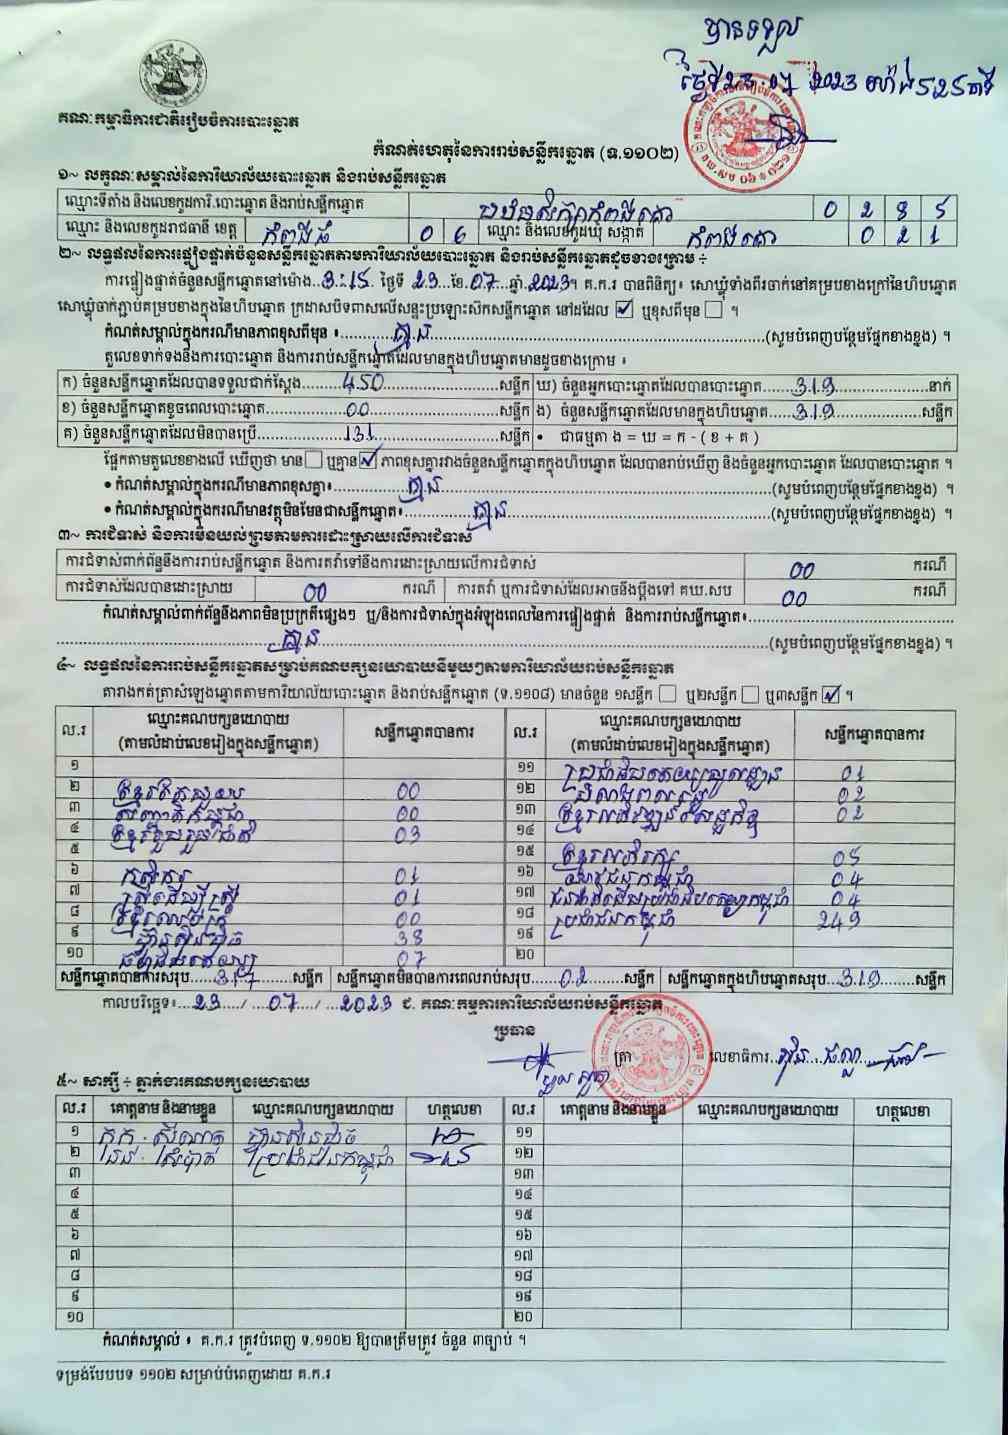 បានទទួល
ថ្ងៃទី23.07 2023 ម៉ោង5 25នាទី
គណៈកម្មាធិការជាតិរៀបចំការបោះឆ្នោត
កំណត់ហេតុនៃការរាប់សន្លឹកឆ្នោត (ទ.១១០២)
១~ លក្ខណៈសម្គាល់នៃការិយាល័យបោះឆ្នោត និងរាប់សន្លឹកឆ្នោត
ឈ្មោះទីតាំង និងលេខកូដការិ.បោះឆ្នោត និងរាប់សន្លឹកឆ្នោត 0 2 8 5
ឈ្មោះ និងលេខកូដរាជធានី ខេត្ត កំពង់ធំ 0 6 ឈ្មោះ និងលេខកូដឃុំ សង្កាត់ 0 2 1
២~ លទ្ធផលនៃការផ្ទៀងផ្ទាត់ចំនួនសន្លឹកឆ្នោតតាមការិយាល័យបោះឆ្នោត និងរាប់សន្លឹកឆ្នោតដូចខាងក្រោម ÷
ការផ្ទៀងផ្ទាត់ចំនួនសន្លឹកឆ្នោតនៅម៉ោង..3:15 ថ្ងៃទី 23 ខែ.07...ឆ្នាំ.2023។ គ.ក.រ បានពិនិត្យ៖ សោឃ្លុំទាំងពីរចាក់នៅគម្របខាងក្រៅនៃហិបឆ្នោត
សោឃ្លុំចាក់ភ្ជាប់គម្របខាងក្នុងនៃហិបឆ្នោត ក្រដាសបិទពាសលើសន្ទះប្រឡោះស៊កសន្លឹកឆ្នោត នៅដដែល ☑ ឬខុសពីមុន ☐ ។
កំណត់សម្គាល់ក្នុងករណីមានភាពខុសពីមុន ៖ គ្មាន (សូមបំពេញបន្ថែមផ្នែកខាងខ្នង) ។
តួលេខទាក់ទងនឹងការបោះឆ្នោត និងការរាប់សន្លឹកឆ្នោតដែលមានក្នុងហិបឆ្នោតមានដូចខាងក្រោម ៖
ក) ចំនួនសន្លឹកឆ្នោតដែលបានទទួលជាក់ស្តែង 450 សន្លឹក ឃ) ចំនួនអ្នកបោះឆ្នោតដែលបានបោះឆ្នោត 319 នាក់
ខ) ចំនួនសន្លឹកឆ្នោតខូចពេលបោះឆ្នោត 00 សន្លឹក ង) ចំនួនសន្លឹកឆ្នោតដែលមានក្នុងហិបឆ្នោត 319 សន្លឹក
គ) ចំនួនសន្លឹកឆ្នោតដែលមិនបានប្រើ 131 សន្លឹក • ជាធម្មតា ង = ឃ = ក - ( ខ + គ )
ផ្អែកតាមតួលេខខាងលើ ឃើញថា មាន ☐ ឬគ្មាន ☑ ភាពខុសគ្នារវាងចំនួនសន្លឹកឆ្នោតក្នុងហិបឆ្នោត ដែលបានរាប់ឃើញ និងចំនួនអ្នកបោះឆ្នោត ដែលបានបោះឆ្នោត ។
• កំណត់សម្គាល់ក្នុងករណីមានភាពខុសគ្នា៖ គ្មាន (សូមបំពេញបន្ថែមផ្នែកខាងខ្នង) ។
• កំណត់សម្គាល់ក្នុងករណីមានវត្ថុមិនមែនជាសន្លឹកឆ្នោត៖ គ្មាន (សូមបំពេញបន្ថែមផ្នែកខាងខ្នង) ។
៣~ ការជំទាស់ និងការមិនយល់ព្រមតាមការដោះស្រាយលើការជំទាស់
ការជំទាស់ពាក់ព័ន្ធនឹងការរាប់សន្លឹកឆ្នោត និងការតវ៉ាទៅនឹងការដោះស្រាយលើការជំទាស់ 00 ករណី
ការជំទាស់ដែលបានដោះស្រាយ 00 ករណី ការតវ៉ា ឬការជំទាស់ដែលអាចនឹងប្តឹងទៅ គឃ.សប 00 ករណី
កំណត់សម្គាល់ពាក់ព័ន្ធនឹងភាពមិនប្រក្រតីផ្សេងៗ ឬ/និងការជំទាស់ក្នុងអំឡុងពេលនៃការផ្ទៀងផ្ទាត់ និងការរាប់សន្លឹកឆ្នោត៖
គ្មាន (សូមបំពេញបន្ថែមផ្នែកខាងខ្នង) ។
៤~ លទ្ធផលនៃការរាប់សន្លឹកឆ្នោតសម្រាប់គណបក្សនយោបាយនីមួយៗតាមការិយាល័យរាប់សន្លឹកឆ្នោត
តារាងកត់ត្រាសំឡេងឆ្នោតតាមការិយាល័យបោះឆ្នោត និងរាប់សន្លឹកឆ្នោត (ទ.១១០៨) មានចំនួន ១សន្លឹក ☐ ឬ២សន្លឹក ☐ ឬ៣សន្លឹក ☑ ។
ល.រ ឈ្មោះគណបក្សនយោបាយ (តាមលំដាប់លេខរៀងក្នុងសន្លឹកឆ្នោត) សន្លឹកឆ្នោតបានការ ល.រ ឈ្មោះគណបក្សនយោបាយ (តាមលំដាប់លេខរៀងក្នុងសន្លឹកឆ្នោត) សន្លឹកឆ្នោតបានការ
១ ១១ 01
២ 00 ១២ 02
៣ 00 ១៣ 02
៤ 03 ១៤
៥ ១៥ ខ្មែរអភិរក្ស 05
៦ កសិករ 01 ១៦ 04
៧ ស្ត្រីដើម្បីស្ត្រី 01 ១៧ 04
៨ 00 ១៨ ប្រជាជនកម្ពុជា 249
៩ ហ្វ៊ុនស៊ិនប៉ិច 38 ១៩
១០ 07 ២០
សន្លឹកឆ្នោតបានការសរុប 317 សន្លឹក សន្លឹកឆ្នោតមិនបានការពេលរាប់សរុប 02 សន្លឹក សន្លឹកឆ្នោតក្នុងហិបឆ្នោតសរុប 319 សន្លឹក
កាលបរិច្ឆេទ៖ 23 / 07 / 2023 ជ. គណៈកម្មការការិយាល័យរាប់សន្លឹកឆ្នោត
ប្រធាន
ត្រា លេខាធិការ
៥~ សាក្សី ÷ ភ្នាក់ងារគណបក្សនយោបាយ
ល.រ គោត្តនាម និងនាមខ្លួន ឈ្មោះគណបក្សនយោបាយ ហត្ថលេខា ល.រ គោត្តនាម និងនាមខ្លួន ឈ្មោះគណបក្សនយោបាយ ហត្ថលេខា
១ ហ្វ៊ុនស៊ិនប៉ិច ១១
២ ប្រជាជនកម្ពុជា ១២
៣ ១៣
៤ ១៤
៥ ១៥
៦ ១៦
៧ ១៧
៨ ១៨
៩ ១៩
១០ ២០
កំណត់សម្គាល់ ៖ គ.ក.រ ត្រូវបំពេញ ទ.១១០២ ឱ្យបានត្រឹមត្រូវ ចំនួន ៣ច្បាប់ ។
ទម្រង់បែបបទ ១១០២ សម្រាប់បំពេញដោយ គ.ក.រ